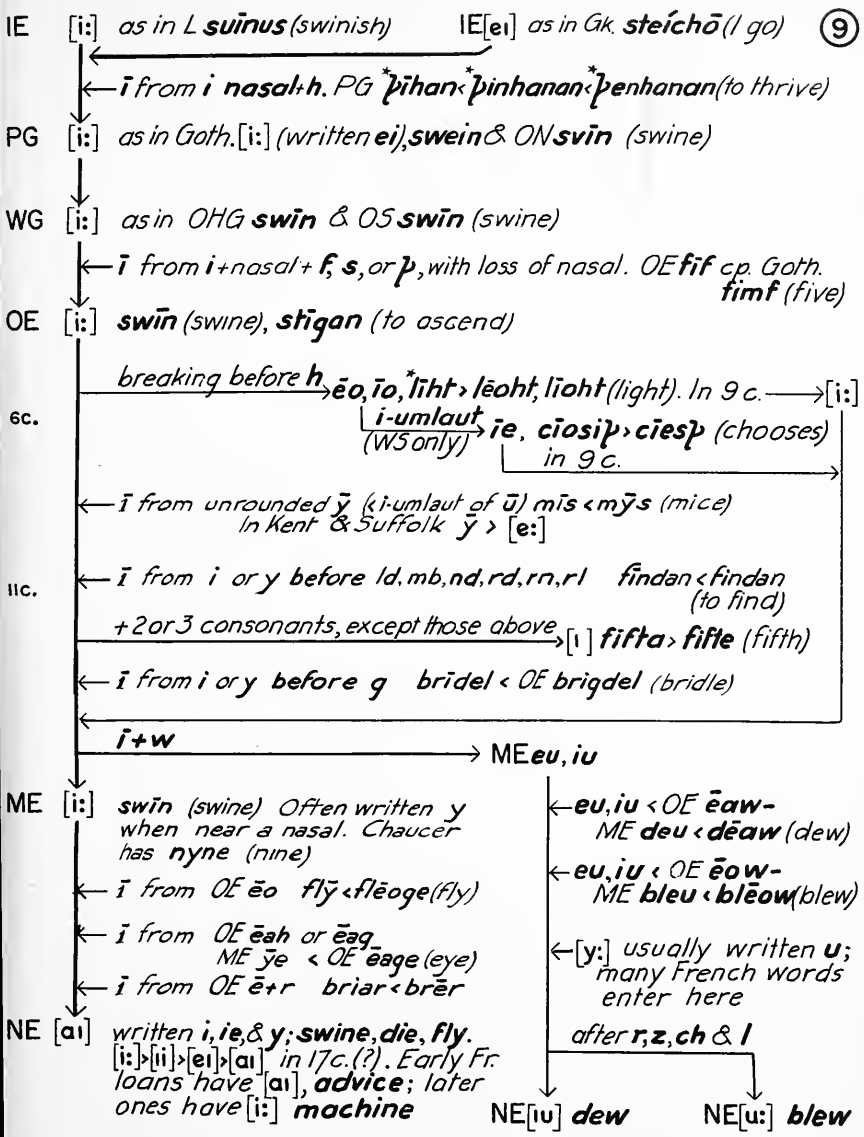 IE [i:] as in L suīnus (swinish) IE [eɪ] as in Gk. steíchō (I go) ⑨
← ī from i nasal+h. PG *þīhan < *þinhanan < *þenhanan (to thrive)
PG [i:] as in Goth. [i:] (written ei), swein & ON svīn (swine)
WG [i:] as in OHG swīn & OS swīn (swine)
← ī from i+nasal+ f, s, or þ, with loss of nasal. OE fīf cp. Goth.
fimf (five)
OE [i:] swīn (swine), stīgan (to ascend)
breaking before h → ēo, īo, *līht > lēoht, līoht (light). In 9 c. → [i:]
6c.
i-umlaut
(WS only) → īe, cīosiþ > cīesþ (chooses)
in 9 c.
← ī from unrounded ȳ (< i-umlaut of ū) mīs < mȳs (mice)
In Kent & Suffolk ȳ > [e:]
11c.
← ī from i or y before ld, mb, nd, rd, rn, rl fīndan < findan
(to find)
+2 or 3 consonants, except those above → [ɪ] fīfta > fifte (fifth)
← ī from i or y before g brīdel < OE brigdel (bridle)
ī+w → ME eu, iu
ME [i:] swīn (swine) Often written y
when near a nasal. Chaucer
has nyne (nine)
← ī from OE ēo flȳ < flēoge (fly)
← ī from OE ēah or ēag
ME ȳe < OE ēage (eye)
← ī from OE ē+r briar < brēr
NE [aɪ] written i, ie, & y; swine, die, fly.
[i:] > [ɪi] > [eɪ] > [aɪ] in 17c.(?). Early Fr.
loans have [aɪ], advice; later
ones have [i:] machine
← eu, iu < OE ēaw-
ME deu < dēaw (dew)
← eu, iu < OE ēow-
ME bleu < blēow (blew)
← [y:] usually written u;
many French words
enter here
after r, z, ch & l
NE [ɪu] dew NE [u:] blew